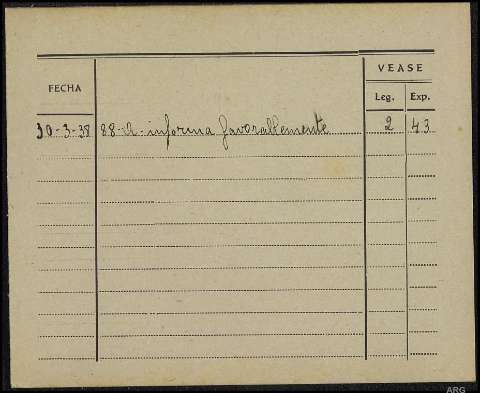 VEASE
FECHA
Leg. Exp.
30-3-38 88-A- informa favorablemente 2 43
ARG